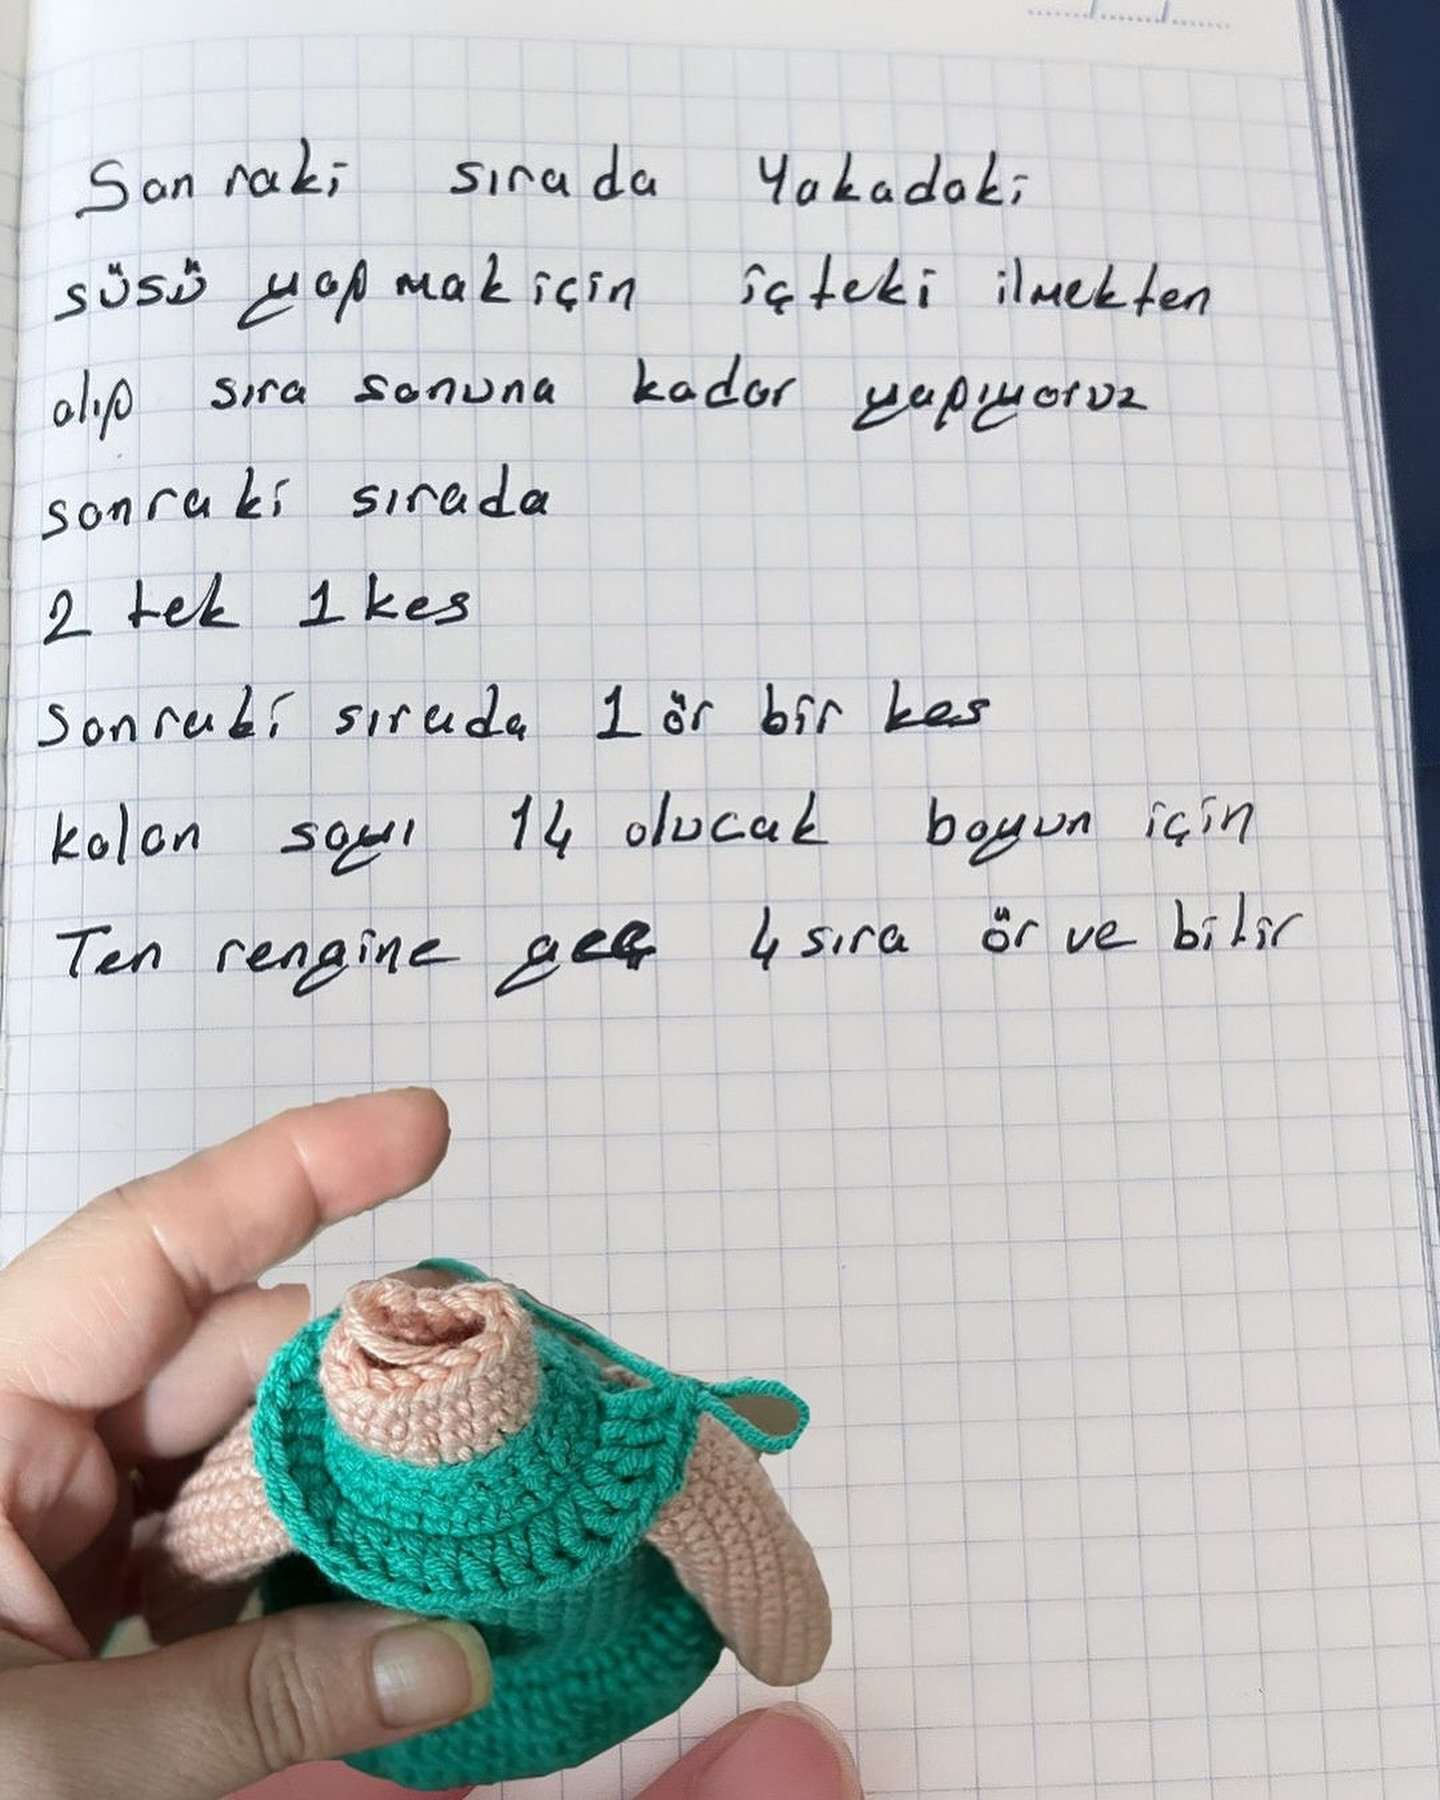 Sonraki sırada Yakadaki
süsü yapmak için içteki ilmekten
alıp sıra sonuna kadar yapıyoruz
sonraki sırada
2 tek 1 kes
Sonraki sırada 1 ör bir kes
kalan sayı 14 olucak boyun için
Ten rengine geç 4 sıra ör ve bitir